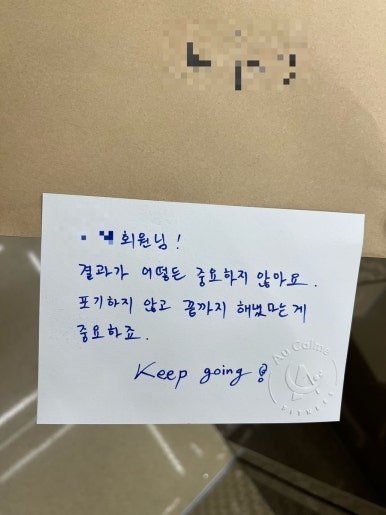 회원님!
결과가 어떻든 중요하지 않아요.
포기하지 않고 끝까지 해냈다는게
중요하죠.
Keep going
Au Calme
FITNESS